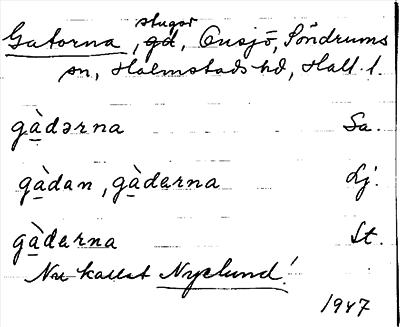 stugor
Gatorna, gd, Onsjö, Söndrums
sn, Halmstads hd, Hall. l.
gàdərna Sa.
gàdan, gàdarna Lj.
gàdarna St.
Nu kallat Nyelund!
1947